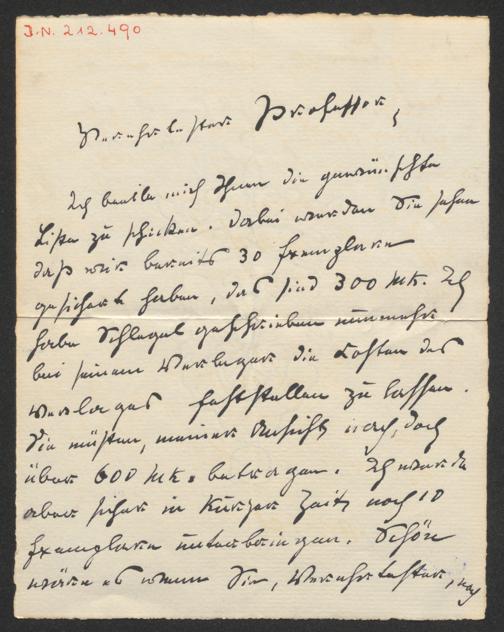 J.N. 212.490
Verehrtester Professor,
Ich beeile mich Ihnen die gewünschte
Liste zu schicken. Dabei werden Sie sehen
daß wir bereits 30 Exemplare
gesichert haben, das sind 300 Mk. Ich
habe Schlegel geschrieben nunmehr
bei seinem Verleger die Kosten des
Verlages feststellen zu lassen.
Sie müßten, meiner Ansicht nach, doch
über 600 Mk. betragen. Ich werde
aber sicher in kurzer Zeit noch 10
Exemplare unterbringen. Schön
wäre es wenn Sie, Verehrtester, noch